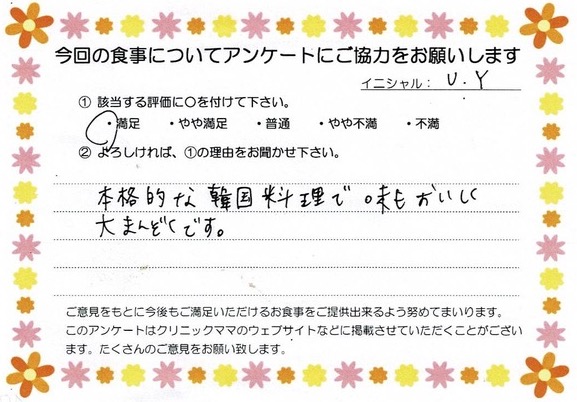 今回の食事についてアンケートにご協力をお願いします
イニシャル： U.Y
① 該当する評価に○を付けて下さい。
・満足 ・やや満足 ・普通 ・やや不満 ・不満
② よろしければ、①の理由をお聞かせ下さい。
本格的な韓国料理で味もおいしく
大まんぞくです。
ご意見をもとに今後もご満足いただけるお食事をご提供出来るよう努めてまいります。
このアンケートはクリニックママのウェブサイトなどに掲載させていただくことがござい
ます。たくさんのご意見をお願い致します。